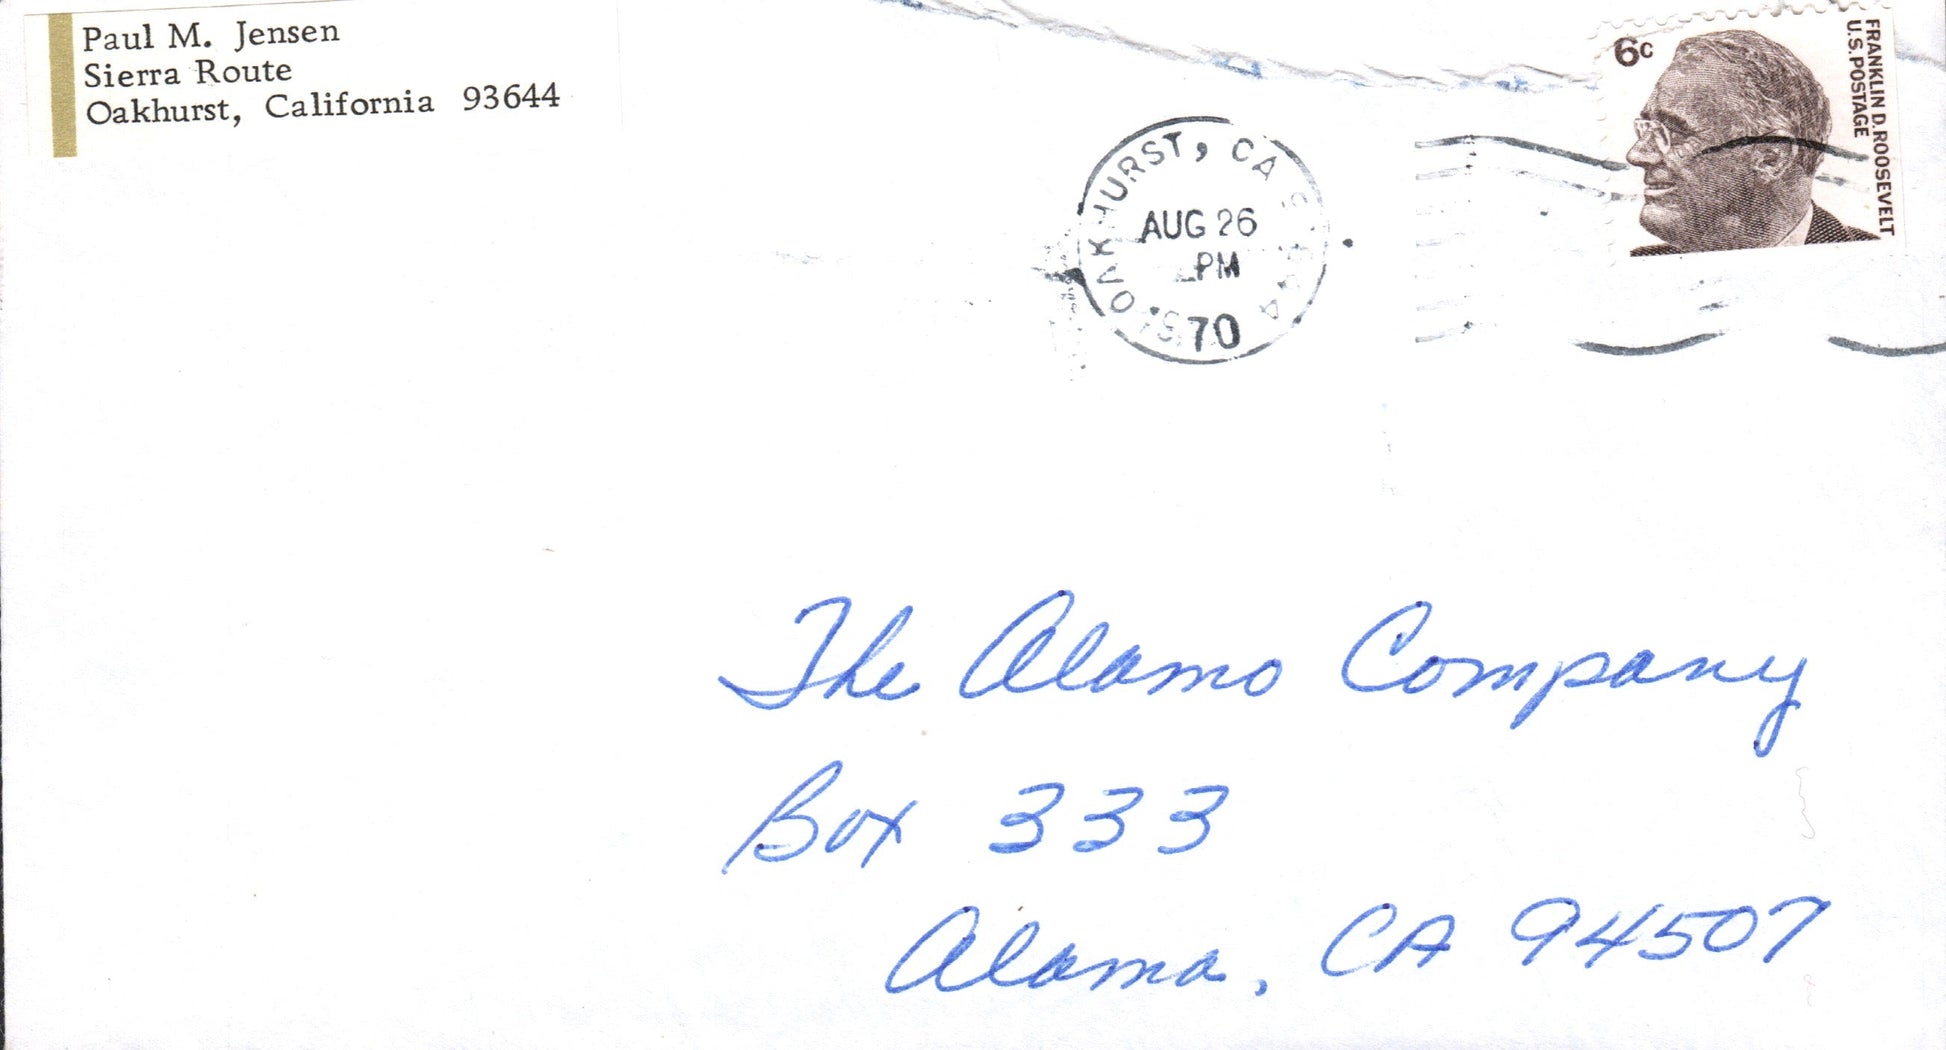 Paul M. Jensen
Sierra Route
Oakhurst, California 93644
6c
FRANKLIN D. ROOSEVELT
U.S. POSTAGE
OAKHURST, CA
AUG 26
PM
70
The Alamo Company
Box 333
Alamo, CA 94507